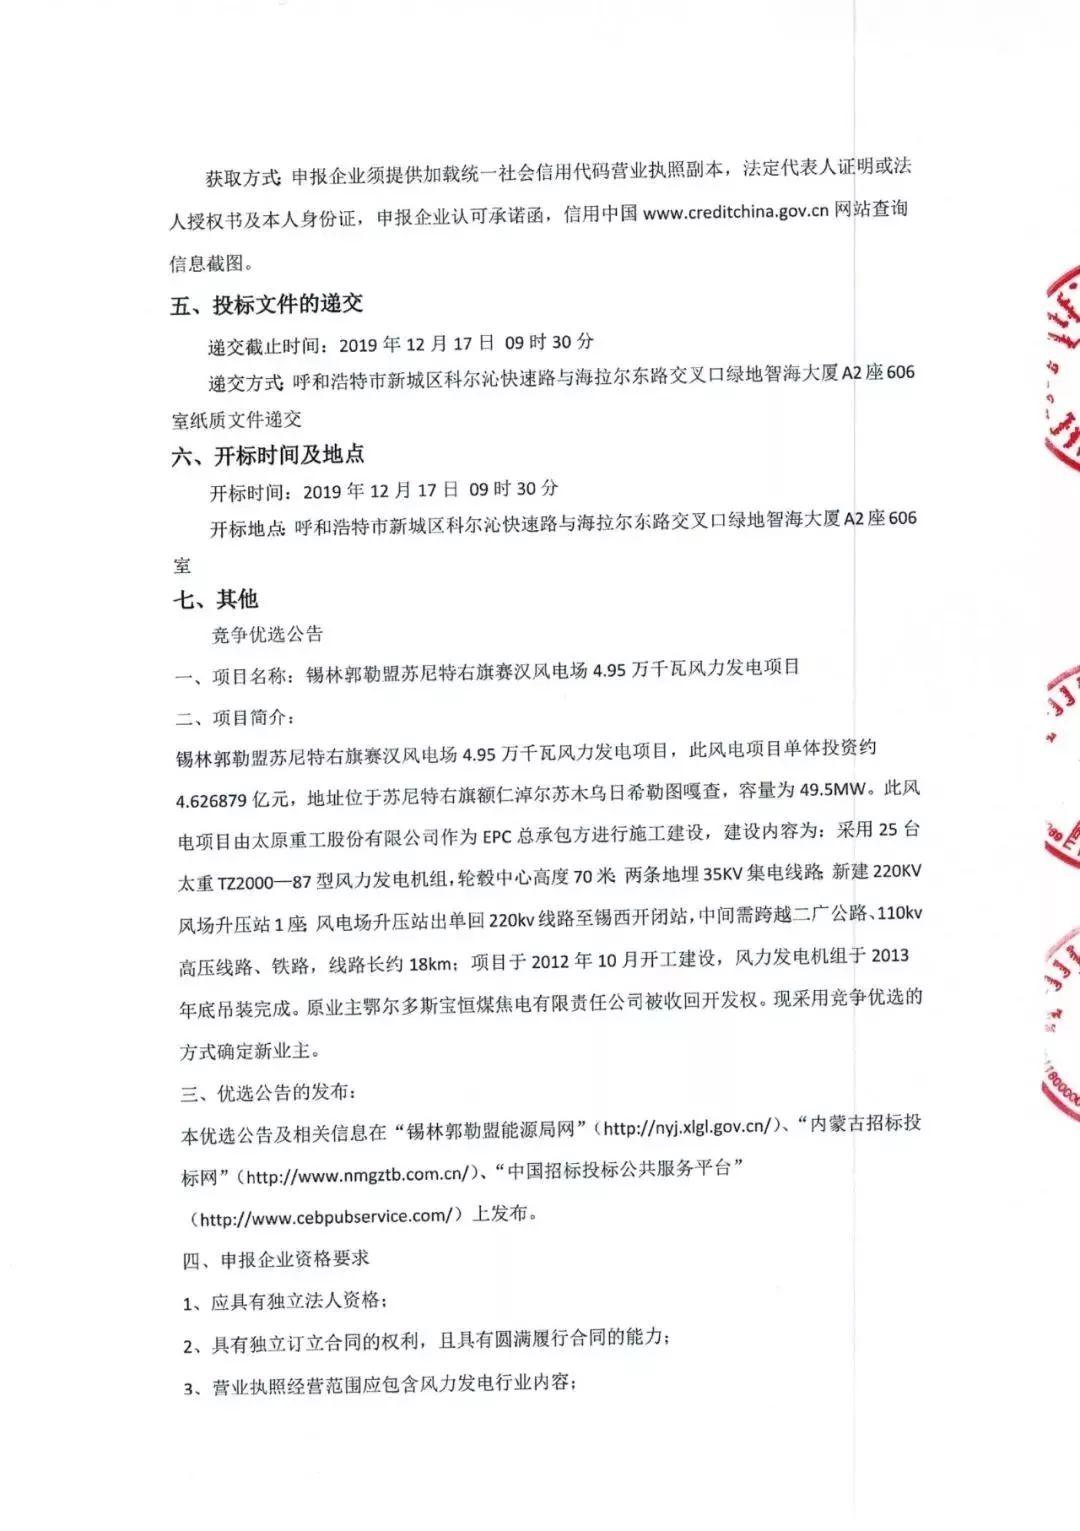 获取方式：申报企业须提供加载统一社会信用代码营业执照副本，法定代表人证明或法
人授权书及本人身份证，申报企业认可承诺函，信用中国 www.creditchina.gov.cn 网站查询
信息截图。
五、投标文件的递交
递交截止时间：2019 年 12 月 17 日 09 时 30 分
递交方式：呼和浩特市新城区科尔沁快速路与海拉尔东路交叉口绿地智海大厦 A2 座 606
室纸质文件递交
六、开标时间及地点
开标时间：2019 年 12 月 17 日 09 时 30 分
开标地点：呼和浩特市新城区科尔沁快速路与海拉尔东路交叉口绿地智海大厦 A2 座 606
室
七、其他
竞争优选公告
一、项目名称：锡林郭勒盟苏尼特右旗赛汉风电场 4.95 万千瓦风力发电项目
二、项目简介：
锡林郭勒盟苏尼特右旗赛汉风电场 4.95 万千瓦风力发电项目，此风电项目单体投资约
4.626879 亿元，地址位于苏尼特右旗额仁淖尔苏木乌日希勒图嘎查，容量为 49.5MW。此风
电项目由太原重工股份有限公司作为 EPC 总承包方进行施工建设，建设内容为：采用 25 台
太重 TZ2000—87 型风力发电机组，轮毂中心高度 70 米；两条地埋 35KV 集电线路；新建 220KV
风场升压站 1 座；风电场升压站出单回 220kv 线路至锡西开闭站，中间需跨越二广公路、110kv
高压线路、铁路，线路长约 18km；项目于 2012 年 10 月开工建设，风力发电机组于 2013
年底吊装完成。原业主鄂尔多斯宝恒煤焦电有限责任公司被收回开发权。现采用竞争优选的
方式确定新业主。
三、优选公告的发布：
本优选公告及相关信息在“锡林郭勒盟能源局网”（http://nyj.xlgl.gov.cn/）、“内蒙古招标投
标网”（http://www.nmgztb.com.cn/）、“中国招标投标公共服务平台”
（http://www.cebpubservice.com/）上发布。
四、申报企业资格要求
1、应具有独立法人资格；
2、具有独立订立合同的权利，且具有圆满履行合同的能力；
3、营业执照经营范围应包含风力发电行业内容；